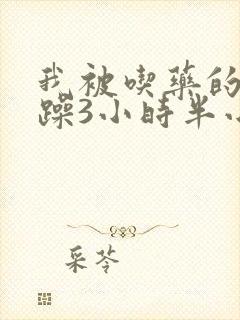 我被喫藥的
躁3小時半小
采苓